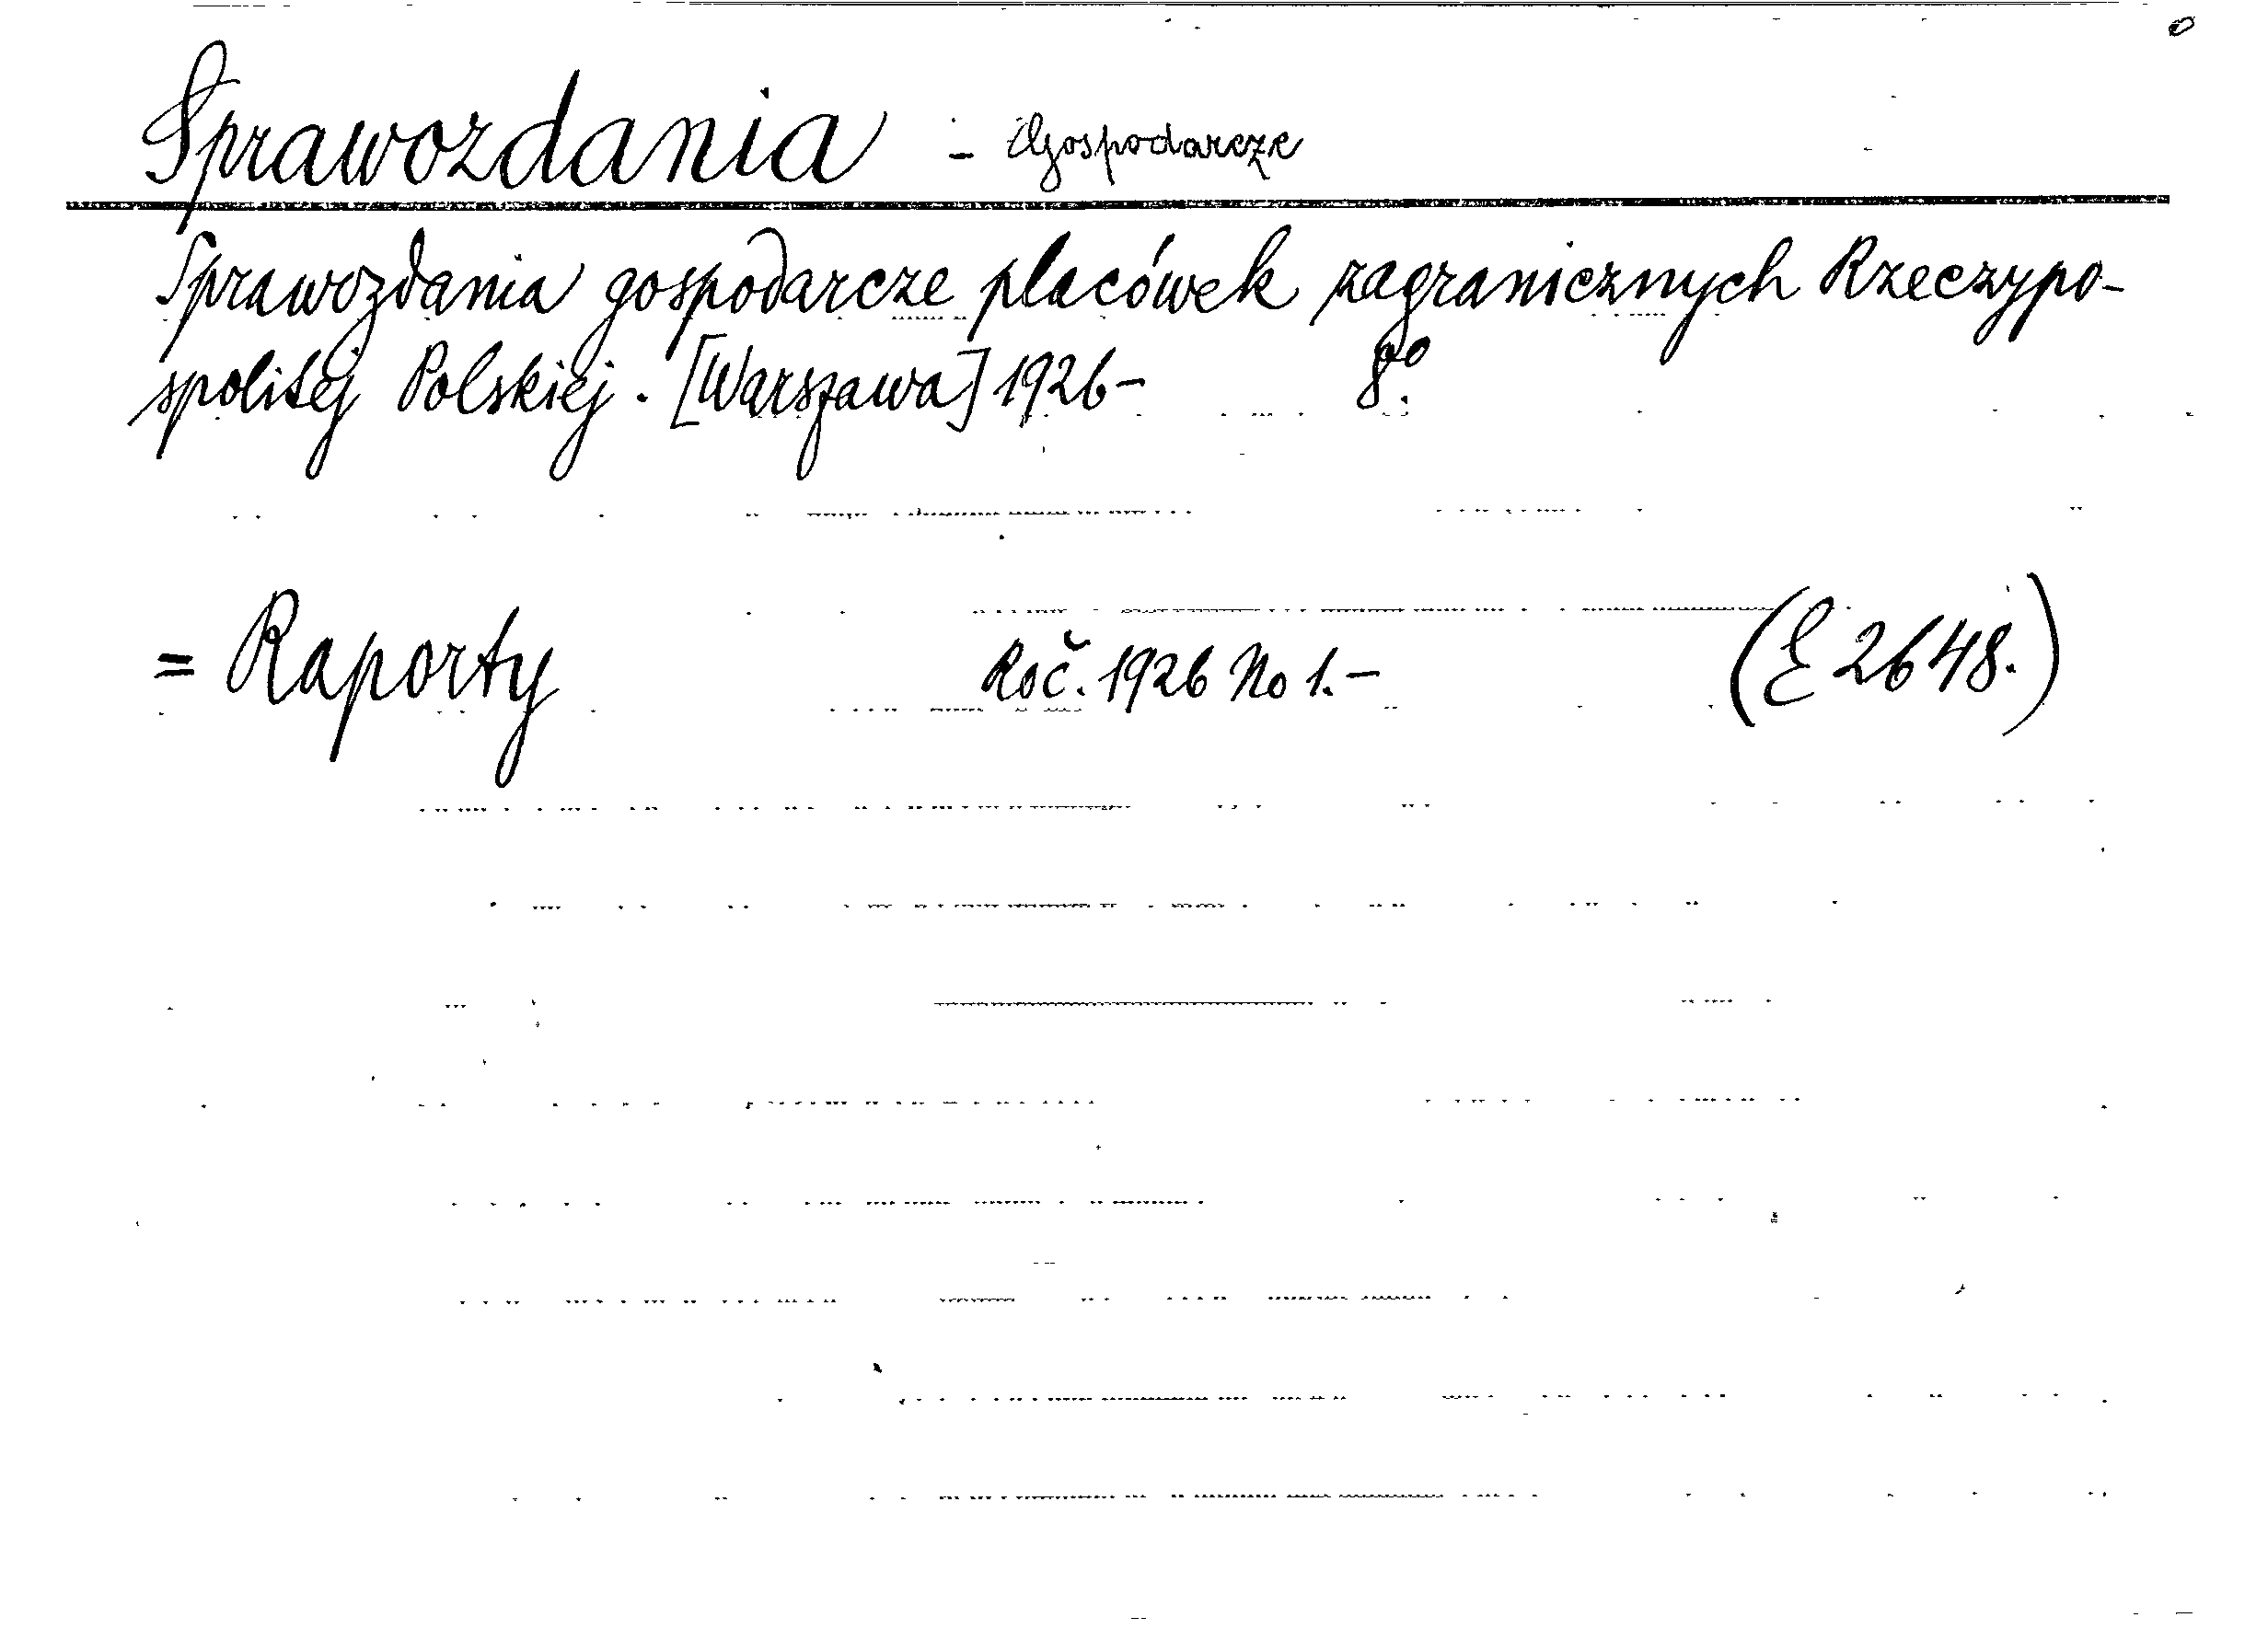 Sprawozdania - Gospodarcze
Sprawozdania gospodarcze placówek zagranicznych Rzeczypo-
spolitej Polskiej. [Warszawa] 1926- 8º.
= Raporty Roč. 1926 No 1.- (E 2648.)